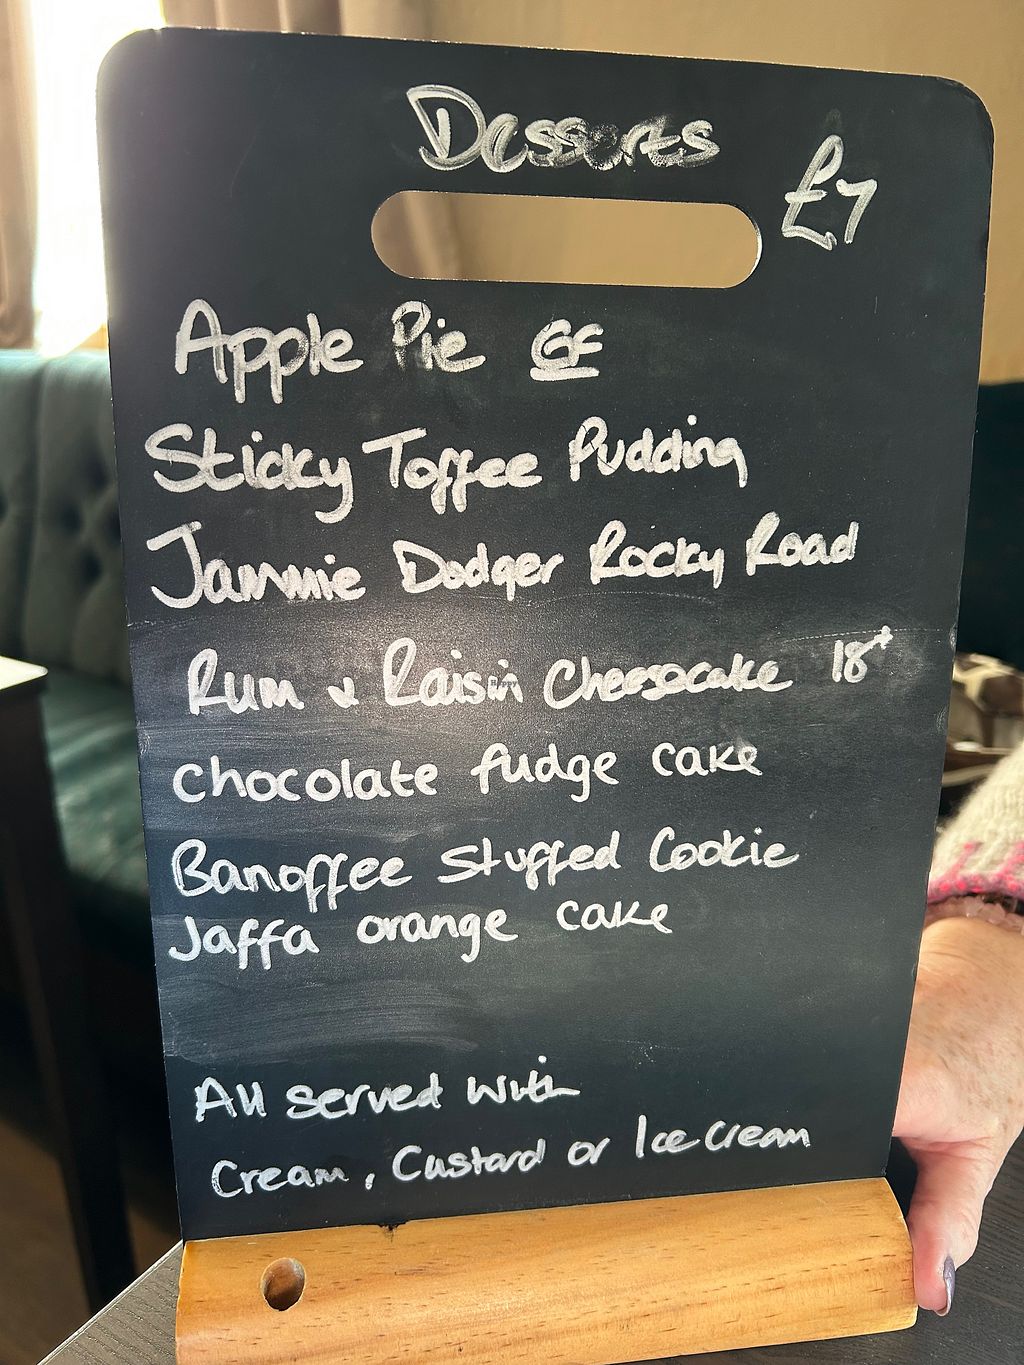 Desserts
£7
Apple Pie GF
Sticky Toffee Pudding
Jammie Dodger Rocky Road
Rum & Raisin Cheesecake 18+
Chocolate fudge cake
Banoffee Stuffed Cookie
Jaffa orange cake
All served with
Cream, Custard or Ice cream